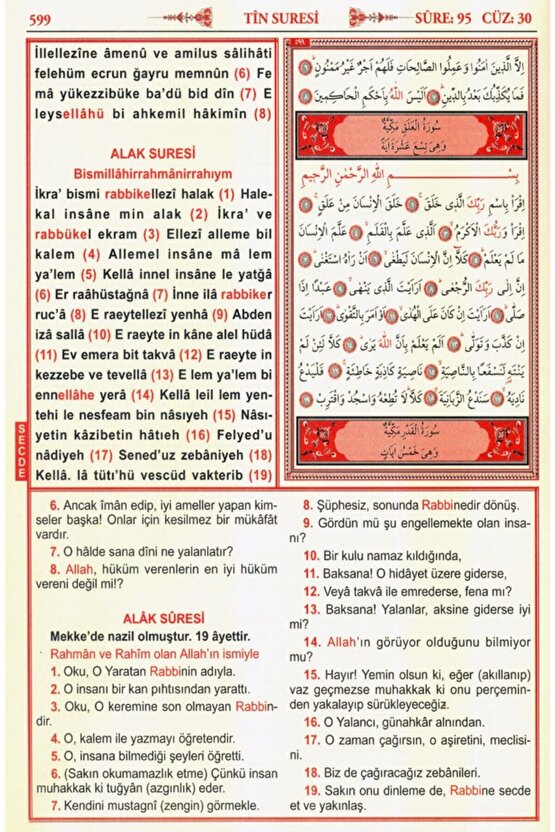 599
TÎN SURESİ
SÛRE: 95 CÜZ: 30
İllellezîne âmenû ve amilus sâlihâti
felehüm ecrun ğayru memnûn (6) Fe
mâ yükezzibüke ba'dü bid dîn (7) E
leysellâhü bi ahkemil hâkimîn (8)
ALAK SURESİ
Bismillâhirrahmânirrahıym
İkra' bismi rabbikellezî halak (1) Hale-
kal insâne min alak (2) İkra' ve
rabbükel ekram (3) Ellezî alleme bil
kalem (4) Allemel insâne mâ lem
ya'lem (5) Kellâ innel insâne le yatğâ
(6) Er raâhüstağnâ (7) İnne ilâ rabbiker
ruc'â (8) E raeytellezî yenhâ (9) Abden
izâ sallâ (10) E raeyte in kâne alel hüdâ
(11) Ev emera bit takvâ (12) E raeyte in
kezzebe ve tevellâ (13) E lem ya'lem bi
ennellâhe yerâ (14) Kellâ leil lem yen-
tehi le nesfeam bin nâsıyeh (15) Nâsı-
yetin kâzibetin hâtıeh (16) Felyed'u
nâdiyeh (17) Sened'uz zebâniyeh (18)
Kellâ. lâ tütı'hü vescüd vakterib (19)
SECDE
اِلَّا الَّذٖينَ اٰمَنُوا وَعَمِلُوا الصَّالِحَاتِ فَلَهُمْ اَجْرٌ غَيْرُ مَمْنُونٍ ﴿٦﴾
فَمَا يُكَذِّبُكَ بَعْدُ بِالدّٖينِ ﴿٧﴾ اَلَيْسَ اللّٰهُ بِاَحْكَمِ الْحَاكِمٖينَ ﴿٨﴾
سُورَةُ الْعَلَقِ مَكِّيَّةٌ
وَهِيَ تِسْعَ عَشْرَةَ اٰيَةً
بِسْمِ اللّٰهِ الرَّحْمٰنِ الرَّحٖيمِ
اِقْرَأْ بِاسْمِ رَبِّكَ الَّذٖي خَلَقَ ﴿١﴾ خَلَقَ الْاِنْسَانَ مِنْ عَلَقٍ ﴿٢﴾
اِقْرَأْ وَرَبُّكَ الْاَكْرَمُ ﴿٣﴾ اَلَّذٖي عَلَّمَ بِالْقَلَمِ ﴿٤﴾ عَلَّمَ الْاِنْسَانَ
مَا لَمْ يَعْلَمْ ﴿٥﴾ كَلَّا اِنَّ الْاِنْسَانَ لَيَطْغٰى ﴿٦﴾ اَنْ رَاٰهُ اسْتَغْنٰى ﴿٧﴾
اِنَّ اِلٰى رَبِّكَ الرُّجْعٰى ﴿٨﴾ اَرَاَيْتَ الَّذٖي يَنْهٰى ﴿٩﴾ عَبْدًا اِذَا
صَلّٰى ﴿١٠﴾ اَرَاَيْتَ اِنْ كَانَ عَلَى الْهُدٰى ﴿١١﴾ اَوْ اَمَرَ بِالتَّقْوٰى ﴿١٢﴾ اَرَاَيْتَ
اِنْ كَذَّبَ وَتَوَلّٰى ﴿١٣﴾ اَلَمْ يَعْلَمْ بِاَنَّ اللّٰهَ يَرٰى ﴿١٤﴾ كَلَّا لَئِنْ لَمْ
يَنْتَهِ لَنَسْفَعًا بِالنَّاصِيَةِ ﴿١٥﴾ نَاصِيَةٍ كَاذِبَةٍ خَاطِئَةٍ ﴿١٦﴾ فَلْيَدْعُ
نَادِيَهُ ﴿١٧﴾ سَنَدْعُ الزَّبَانِيَةَ ﴿١٨﴾ كَلَّا لَا تُطِعْهُ وَاسْجُدْ وَاقْتَرِبْ ﴿١٩﴾
سُورَةُ الْقَدْرِ مَكِّيَّةٌ
وَهِيَ خَمْسُ اٰيَاتٍ
6. Ancak îmân edip, iyi ameller yapan kim-
seler başka! Onlar için kesilmez bir mükâfât
vardır.
7. O hâlde sana dîni ne yalanlatır?
8. Allah, hüküm verenlerin en iyi hüküm
vereni değil mi!?
ALÂK SÛRESİ
Mekke'de nazil olmuştur. 19 âyettir.
Rahmân ve Rahîm olan Allah'ın ismiyle
1. Oku, O Yaratan Rabbinin adıyla.
2. O insanı bir kan pıhtısından yarattı.
3. Oku, O keremine son olmayan Rabbin-
dir.
4. O, kalem ile yazmayı öğretendir.
5. O, insana bilmediği şeyleri öğretti.
6. (Sakın okumamazlık etme) Çünkü insan
muhakkak ki tuğyân (azgınlık) eder.
7. Kendini mustagnî (zengin) görmekle.
8. Şüphesiz, sonunda Rabbinedir dönüş.
9. Gördün mü şu engellemekte olan insa-
nı?
10. Bir kulu namaz kıldığında,
11. Baksana! O hidâyet üzere giderse,
12. Veyâ takvâ ile emrederse, fena mı?
13. Baksana! Yalanlar, aksine giderse iyi
mi?
14. Allah'ın görüyor olduğunu bilmiyor
mu?
15. Hayır! Yemin olsun ki, eğer (akıllanıp)
vaz geçmezse muhakkak ki onu perçemin-
den yakalayıp sürükleyeceğiz.
16. O Yalancı, günahkâr alnından.
17. O zaman çağırsın, o aşiretini, meclisi-
ni.
18. Biz de çağıracağız zebânileri.
19. Sakın onu dinleme de, Rabbine secde
et ve yakınlaş.